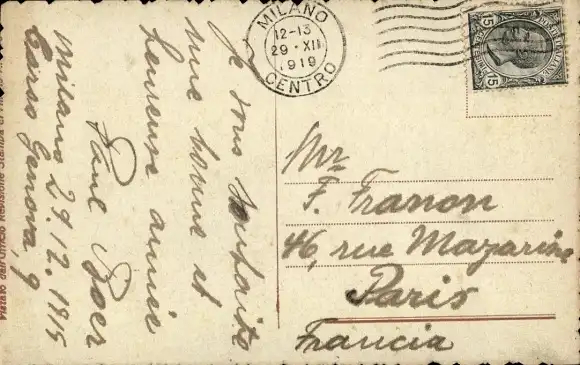 MILANO
12-13
29·XII
1919
CENTRO
15
15
Je vous souhaite
une bonne et
heureuse année
Paul Boer
Milano 29.12.1919
Corso Genova, 9
Mr
F. Franon
46, rue Mazarine
Paris
Francia
Visto dall'Ufficio Revisione Stampa